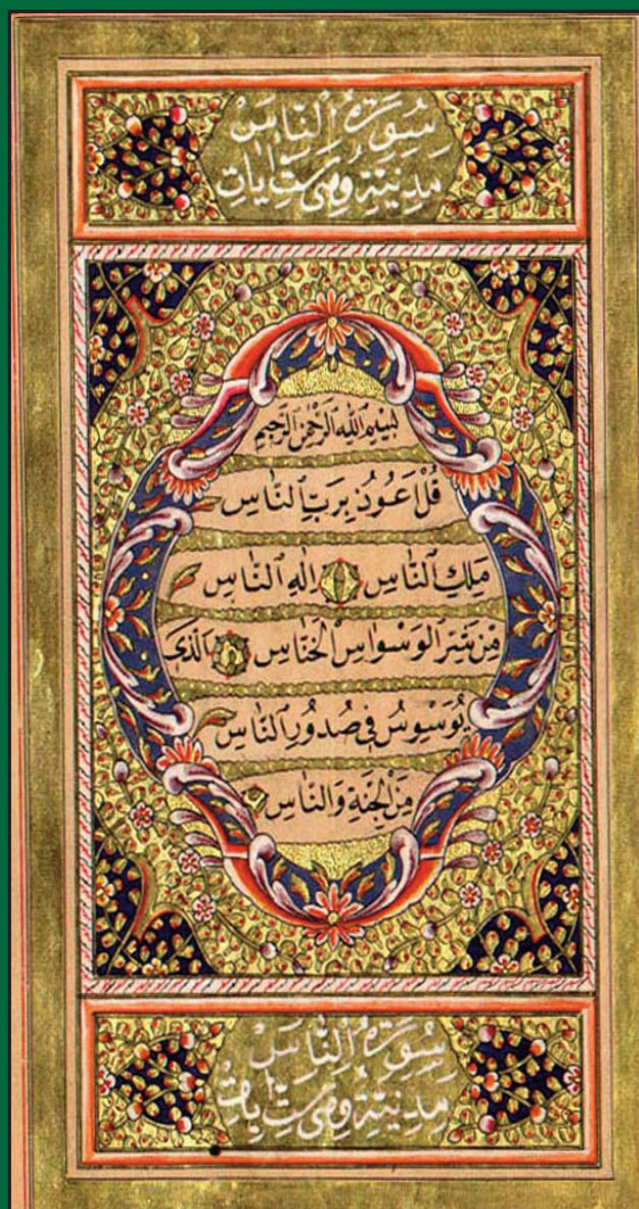 سُورَةُ النَّاسِ
مَدَنِيَّةٌ وَهِيَ سِتُّ اٰيَاتٍ
بِسْمِ اللّٰهِ الرَّحْمٰنِ الرَّحِيمِ
قُلْ اَعُوذُ بِرَبِّ النَّاسِ
مَلِكِ النَّاسِ اِلٰهِ النَّاسِ
مِنْ شَرِّ الْوَسْوَاسِ الْخَنَّاسِ اَلَّذِى
يُوَسْوِسُ فِى صُدُورِ النَّاسِ
مِنَ الْجِنَّةِ وَالنَّاسِ
سُورَةُ النَّاسِ
مَدَنِيَّةٌ وَهِيَ سِتُّ اٰيَاتٍ